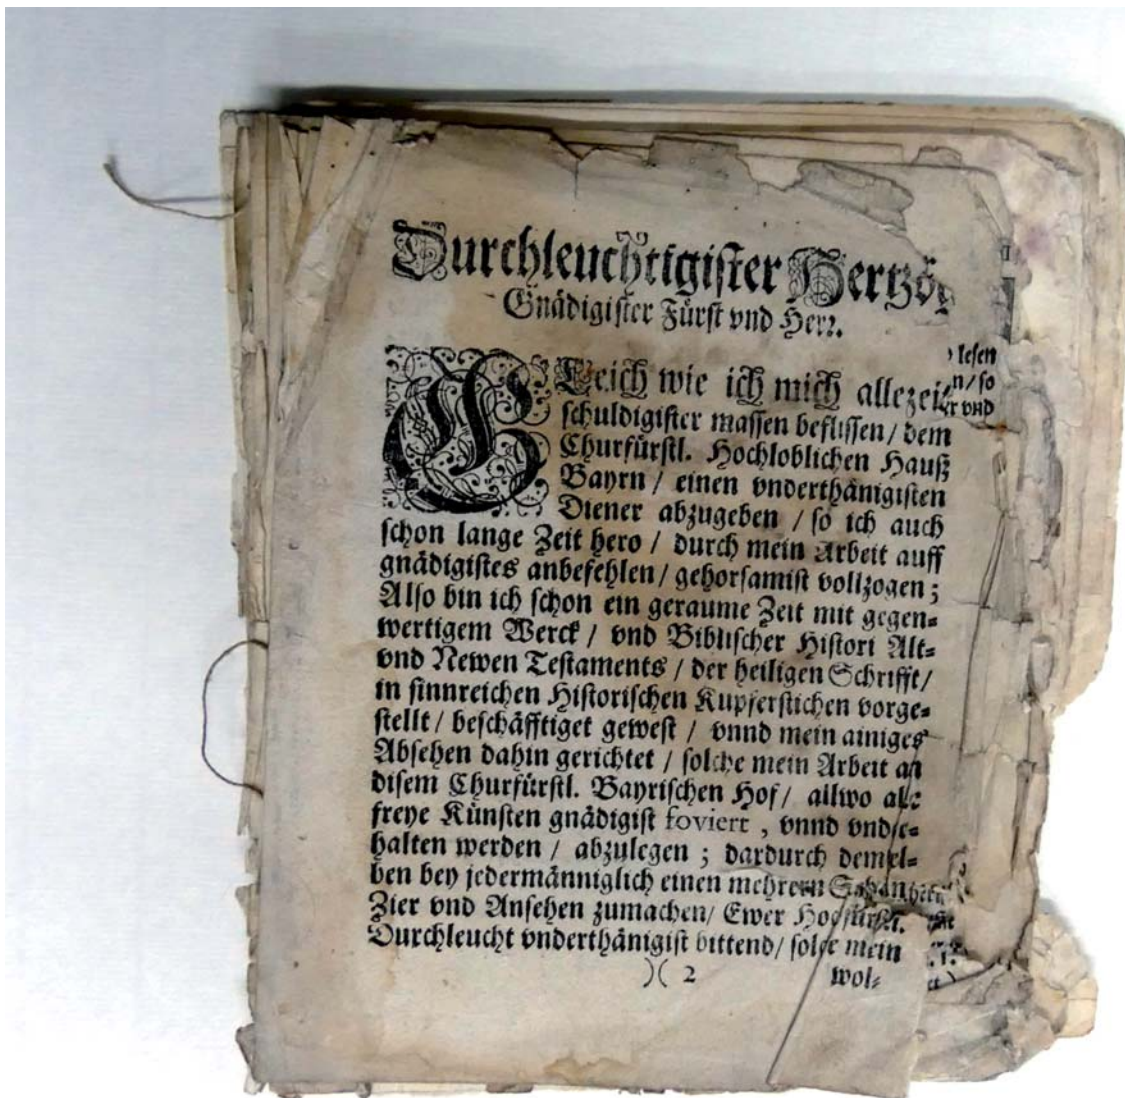 Durchleuchtigister Hertzog
Gnädigister Fürst vnd Herr.
GLeich wie ich mich allezeit
schuldigister massen beflissen / dem
Churfürstl. Hochloblichen Hauß
Bayrn / einen vnderthänigisten
Diener abzugeben / so ich auch
schon lange Zeit hero / durch mein Arbeit auff
gnädigistes anbefehlen / gehorsamist vollzogen ;
Also bin ich schon ein geraume Zeit mit gegen-
wertigem Werck / vnd Biblischer Histori Alt-
vnd Newen Testaments / der heiligen Schrifft /
in sinnreichen Historischen Kupferstichen vorge-
stellt / beschäfftiget gewest / vnnd mein ainiges
Absehen dahin gerichtet / solche mein Arbeit an
disem Churfürstl. Bayrischen Hof / allwo alle
freye Künsten gnädigist foviert , vnnd vnder-
halten werden / abzulegen ; dardurch demsel-
ben bey jedermänniglich einen mehrern
Zier vnd Ansehen zumachen / Ewer Hochfürstl.
Durchleucht vnderthänigist bittend / solche mein
)( 2
wol-
lesen
n / so
er vnd